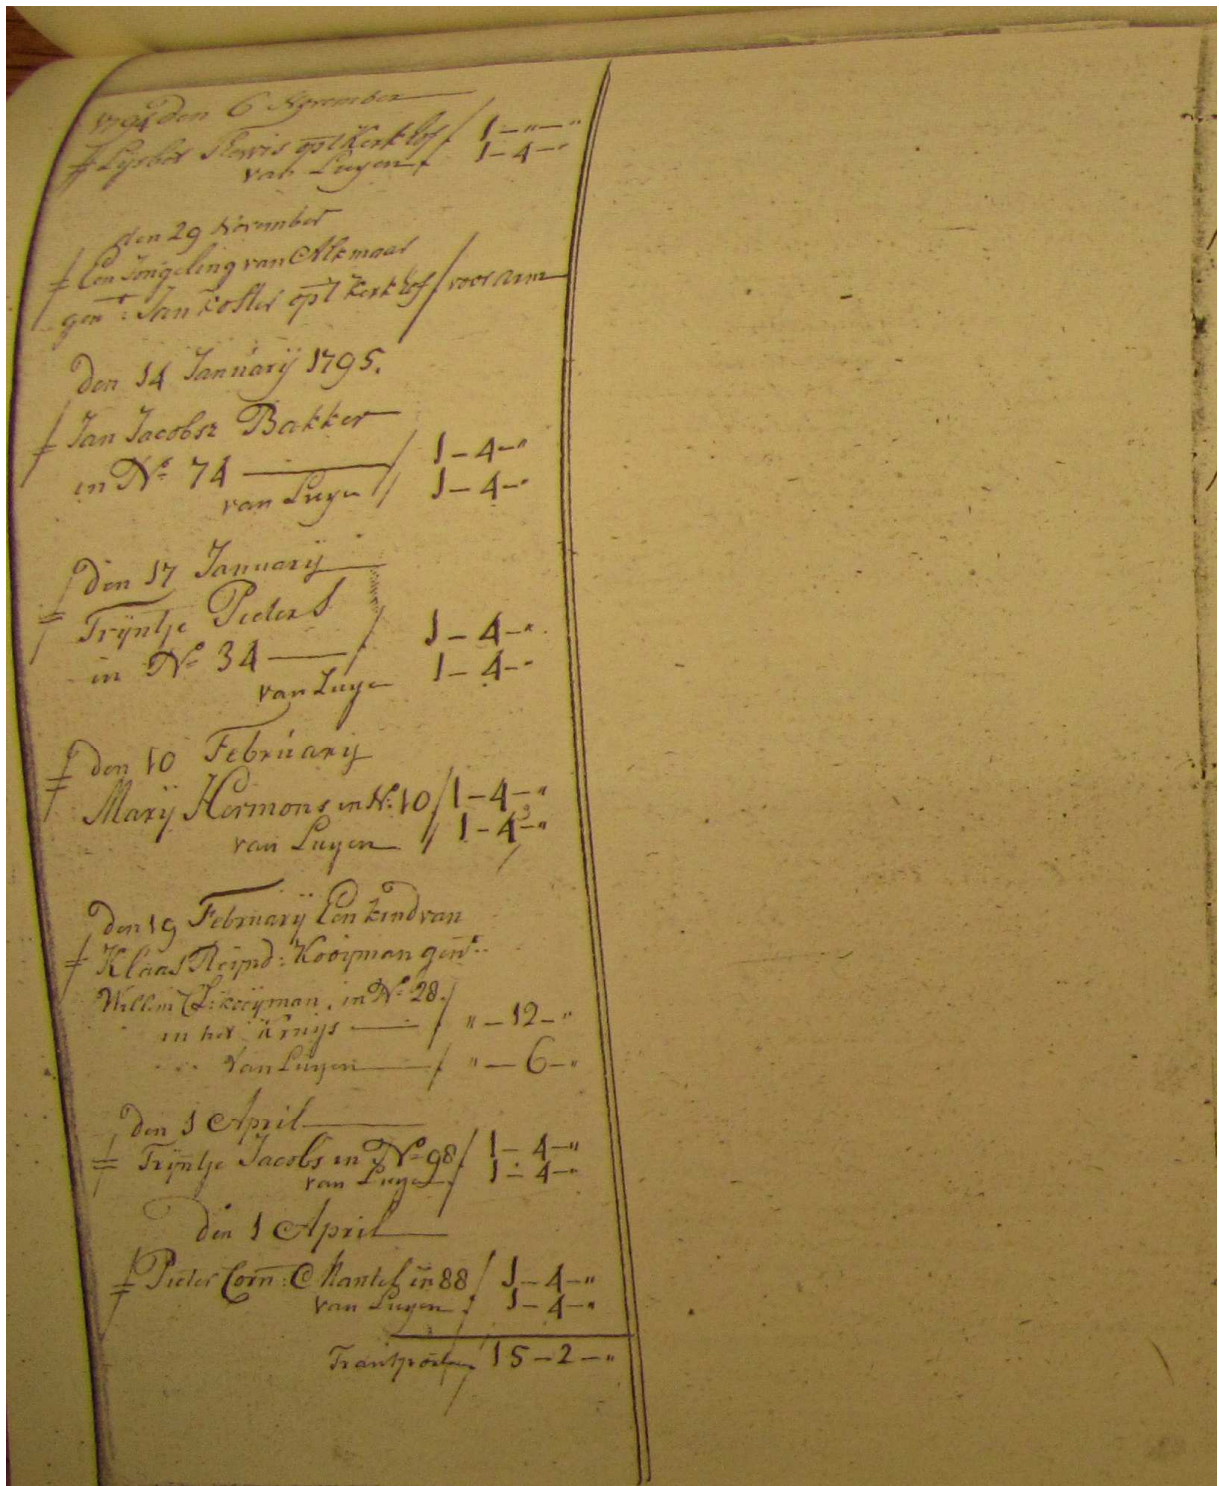 1794 den 6 November
Lijsbet Klewis op 't Kerk hof 1 - " - "
van Luyen 1 - 4 - "
den 29 November
Een Jongeling van Alkmaar
gent: Jan Koster op 't kerk hof voor arm
Den 14 Januarij 1795.
Jan Jacobsz Bakker
in No 74 1 - 4 - "
van Luyen 1 - 4 - "
Den 17 Januarij
Trijntje Pieters
in No 34 1 - 4 - "
van Luyen 1 - 4 - "
Den 10 Februarij
Marij Hermons in No 10 1 - 4 - "
van Luyen 1 - 4 - "
Den 19 Februarij Een kind van
Klaas Reijnd: Kooijman gent:
Willem Kooijman, in No 28.
in het Kruijs " - 12 - "
van Luyen " - 6 - "
Den 1 April
Trijntje Jacobs in No 98 1 - 4 - "
van Luyen 1 - 4 - "
Den 1 April
Pieter Corn: Mantel in 88 1 - 4 - "
van Luyen 1 - 4 - "
Transporten 15 - 2 - "